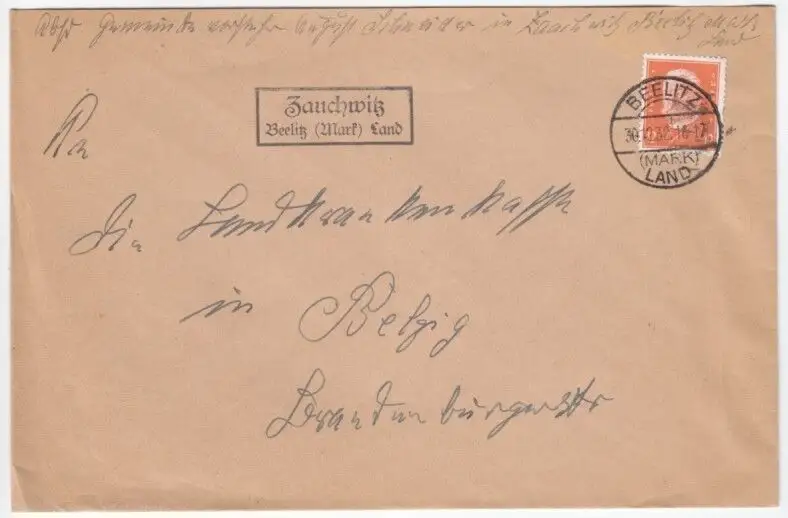 Absd Gemeindevorsteher August Schneider in Zauchwitz Beelitz Mark
Land
Zauchwitz
Beelitz (Mark) Land
BEELITZ
30.12.32.16-17
(MARK)
LAND
An
die Landkrankenkasse
in Belzig
Brandenburgerstr